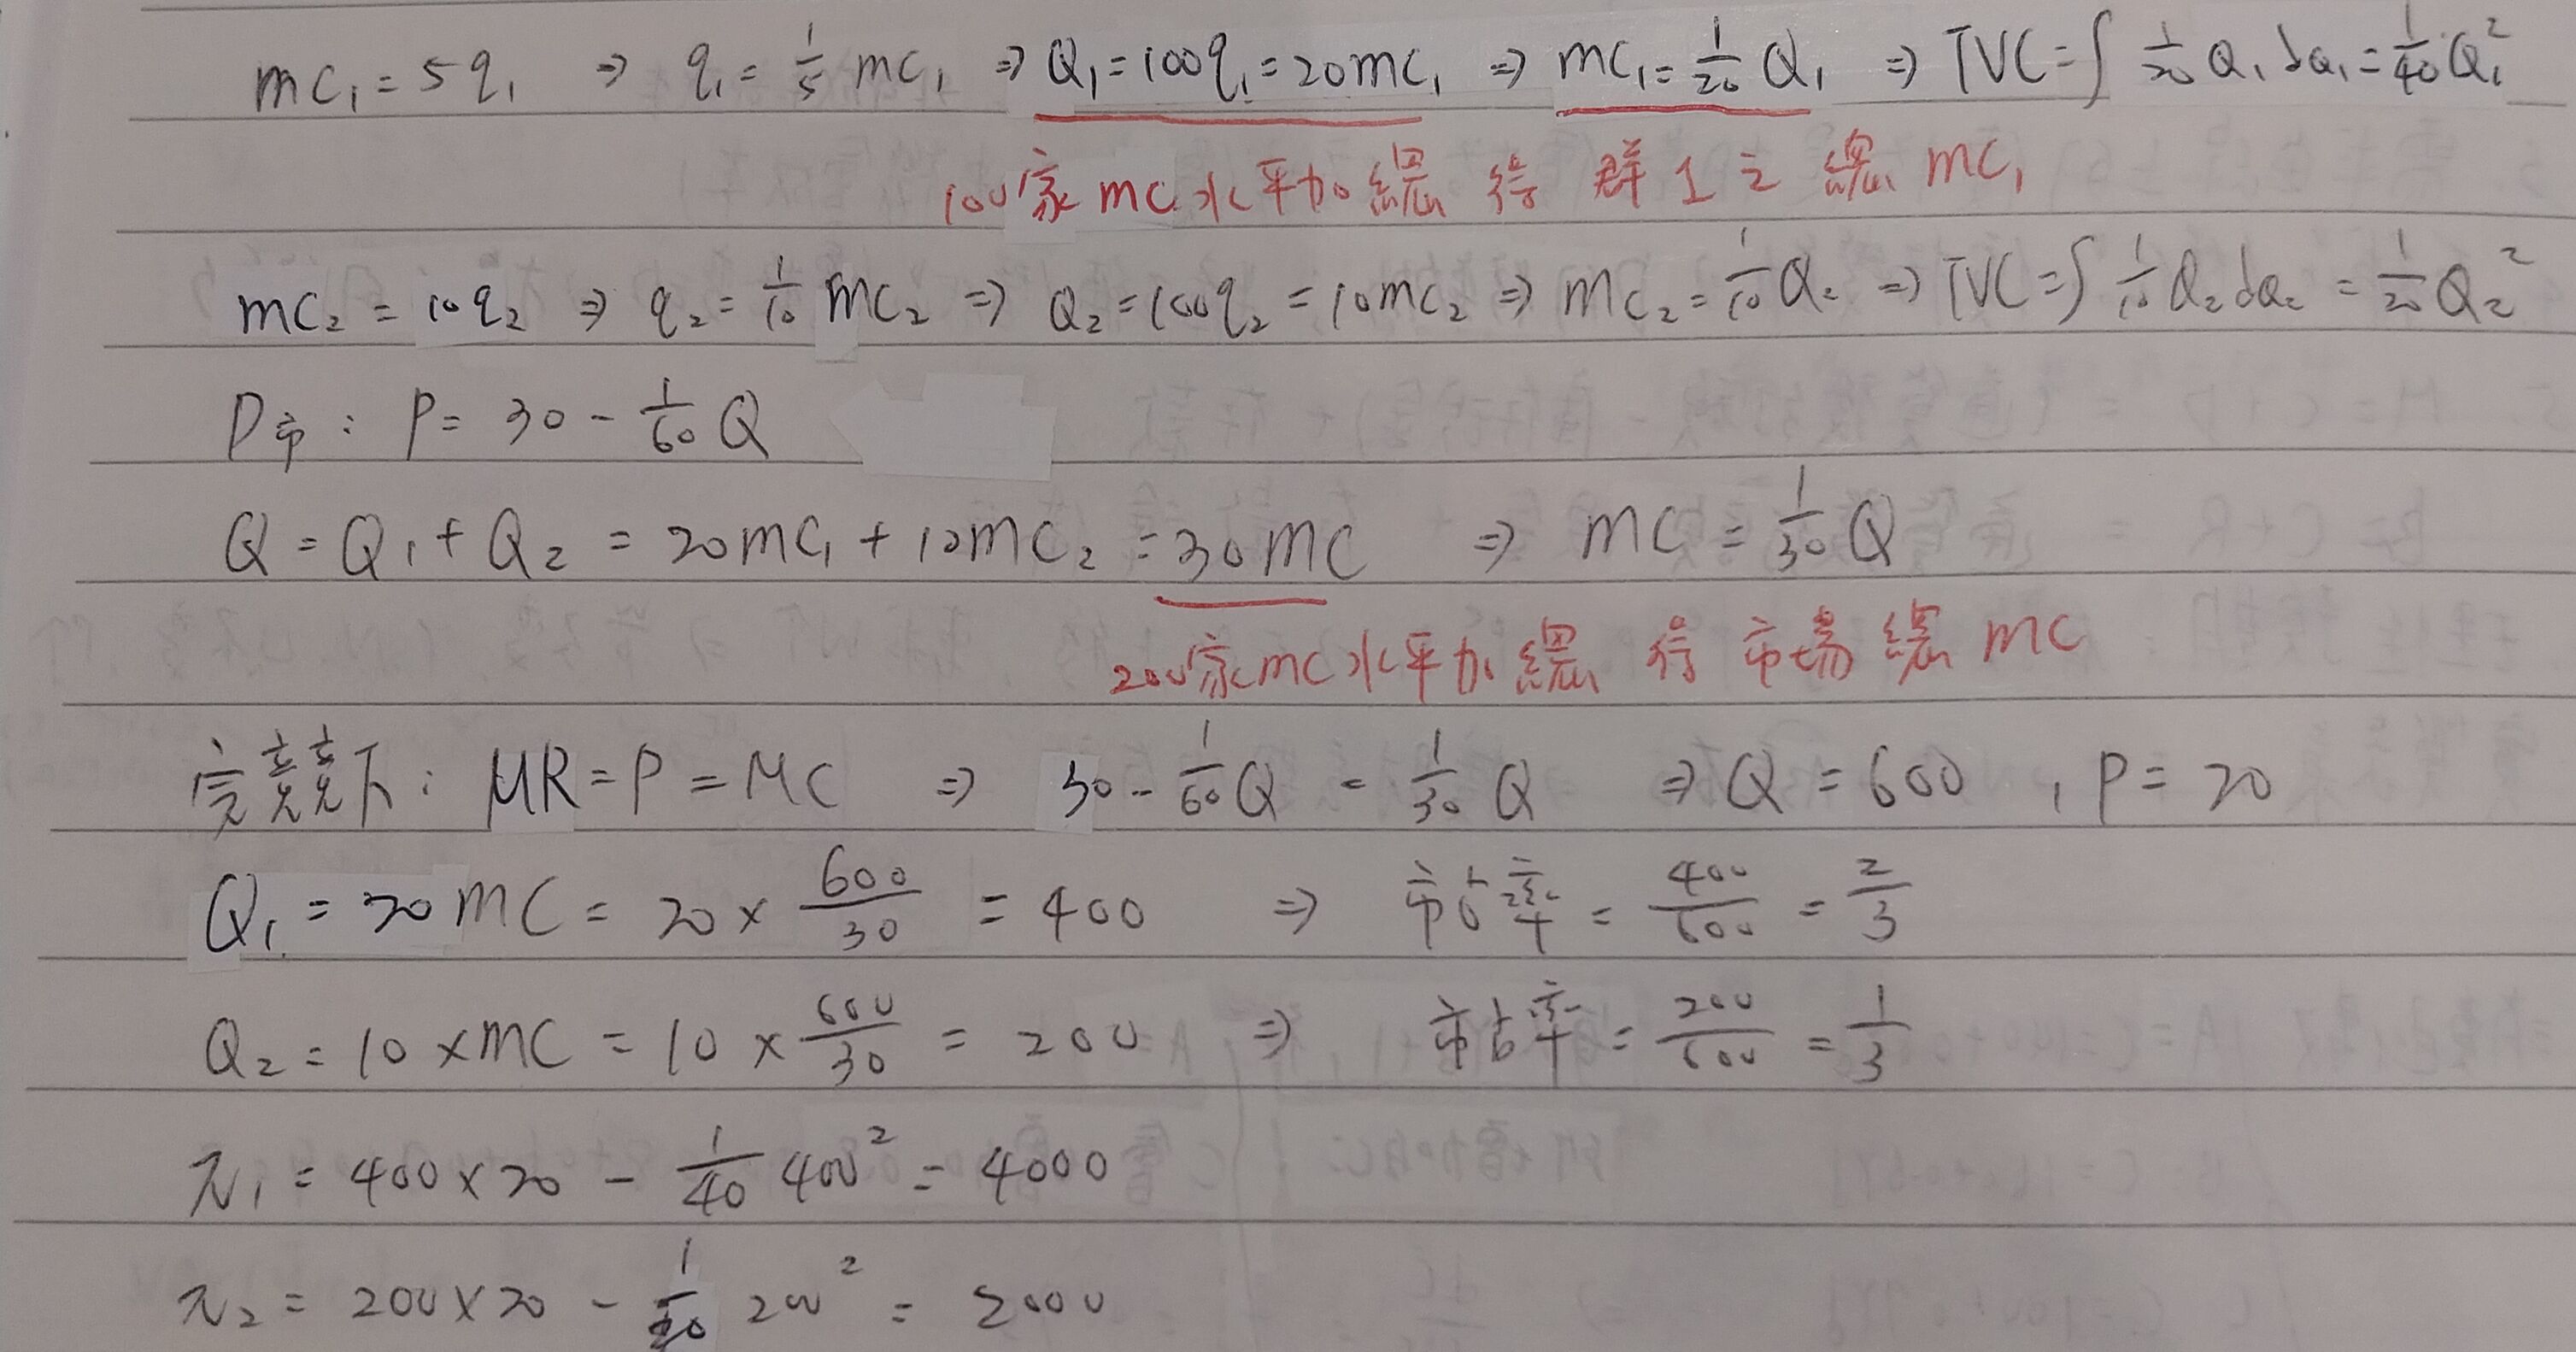 mc₁ = 5q₁ ⇒ q₁ = 1/5 mc₁ ⇒ Q₁ = 100q₁ = 20mc₁ ⇒ mc₁ = 1/20 Q₁ ⇒ TVC = ∫ 1/20 Q₁ dQ₁ = 1/40 Q₁²
100家 mc 水平加總 得 群1之總 mc₁
mc₂ = 10q₂ ⇒ q₂ = 1/10 mc₂ ⇒ Q₂ = 100q₂ = 10mc₂ ⇒ mc₂ = 1/10 Q₂ ⇒ TVC = ∫ 1/10 Q₂ dQ₂ = 1/20 Q₂²
D市 : P = 30 - 1/60 Q
Q = Q₁ + Q₂ = 20mc₁ + 10mc₂ = 30mc ⇒ mc = 1/30 Q
200家mc水平加總 得 市場總 mc
完競下: MR = P = MC ⇒ 30 - 1/60 Q = 1/30 Q ⇒ Q = 600 , P = 20
Q₁ = 20mc = 20 × 600/30 = 400 ⇒ 市占率 = 400/600 = 2/3
Q₂ = 10 × mc = 10 × 600/30 = 200 ⇒ 市占率 = 200/600 = 1/3
π₁ = 400 × 20 - 1/40 400² = 4000
π₂ = 200 × 20 - 1/20 200² = 2000